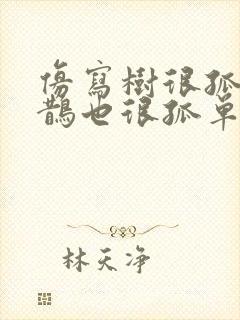 傷寫樹很孤
鵲也很孤单
林天净